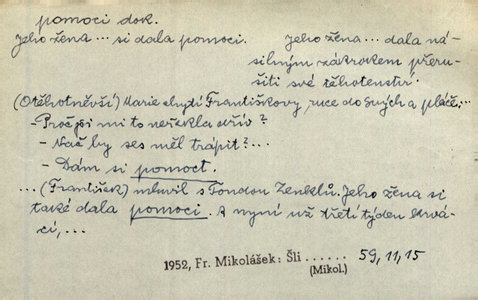 pomoci dok.
Jeho žena... si dala pomoci.
Jeho žena... dala ná-
silným zákrokem přeru-
šiti své těhotenství.
(Otěhotněvší) Marie chytí Františkovy ruce do svých a pláče...
- Proč jsi mi to neřekla dřív?
- Nač by ses měl trápit?...
- Dám si pomoct.
...(František) mluvil s Tondou Zenklů. Jeho žena si
také dala pomoci. A nyní už třetí týden krvá-
cí,...
1952, Fr. Mikolášek: Šli ...... 59, 11, 15
(Mikol.)